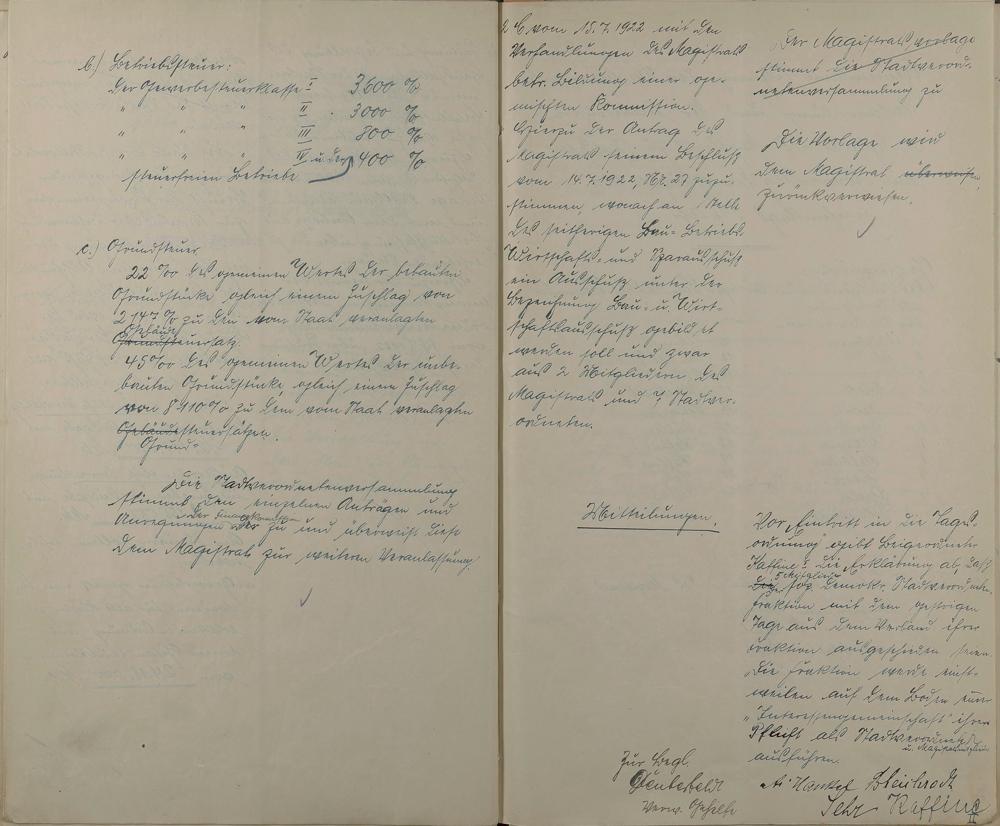 b.) Betriebssteuer:
der Gewerbesteuerklasse I 3600 %
" " " II . 3000 %
" " " III 800 %
" " " IV u. der 400 %
steuerfreien Betriebe
c.) Grundsteuer
22 ‰ des gemeinen Wertes der bebauten
Grundstücke gleich einem Zuschlag von
2147 % zu den vom Staat veranlagten
Gebäude
Grundsteuersatz.
45 ‰ des gemeinen Wertes der unbe-
bauten Grundstücke, gleich einem Zuschlag
von 8910 % zu dem vom Staat veranlagten
Gebäudesteuersätzen.
Grund-
Die Stadtverordnetenversammlung
stimmt den einzelnen Anträgen und
der Finanzkommission
Anregungen zu und überweist diese
dem Magistrat zur weiteren Veranlassung.
vom 15.7.1922 mit den
Verhandlungen des Magistrats
betr. Bildung einer ge-
mischten Kommission.
Hierzu der Antrag des
Magistrats seinem Beschluß
vom 14.7.1922, Nr. 27 zuzu-
stimmen, wonach an Stelle
des seitherigen Bau- Betriebs-
Wirtschafts- und Sparausschuß
ein Ausschuß unter der
Bezeichnung Bau- u. Wirt-
schaftsausschuß gebildet
werden soll und zwar
aus 2 Mitgliedern des
Magistrats und 7 Stadtver-
ordneten.
Der Magistratsvorlage
stimmt die Stadtverord-
netenversammlung zu
Die Vorlage wird
dem Magistrat überwiesen
zurückverwiesen.
Mitteilungen.
Vor Eintritt in die Tages-
ordnung gibt Beigeordneter
Kaffine I die Erklärung ab, daß
5 Mitglieder
die soz. demokr. Stadtverordneten-
fraktion mit dem gestrigen
Tage aus dem Verband ihrer
Fraktion ausgeschieden seien.
Die Fraktion werde einst-
weilen auf dem Boden einer
"Interessengemeinschaft" ihrer
Pflicht als Stadtverordnete
u. Magistratsmitglieder
ausführen.
Zur Begl.
Verw. Gehilfe
Hankel Bleibrodt
Sehr Kaffine
II